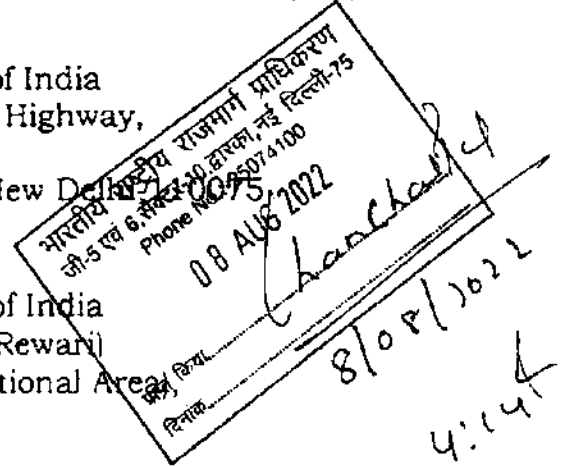 of India
Highway,
New Delhi-110075,
of India
Rewari)
tional Area,
भारतीय राष्ट्रीय राजमार्ग प्राधिकरण
जी-5 एवं 6, सैक्टर-10, द्वारका, नई दिल्ली-75
Phone No. 25074100
08 AUG 2022
प्राप्त किया
दिनांक
8/08/2022
4:14